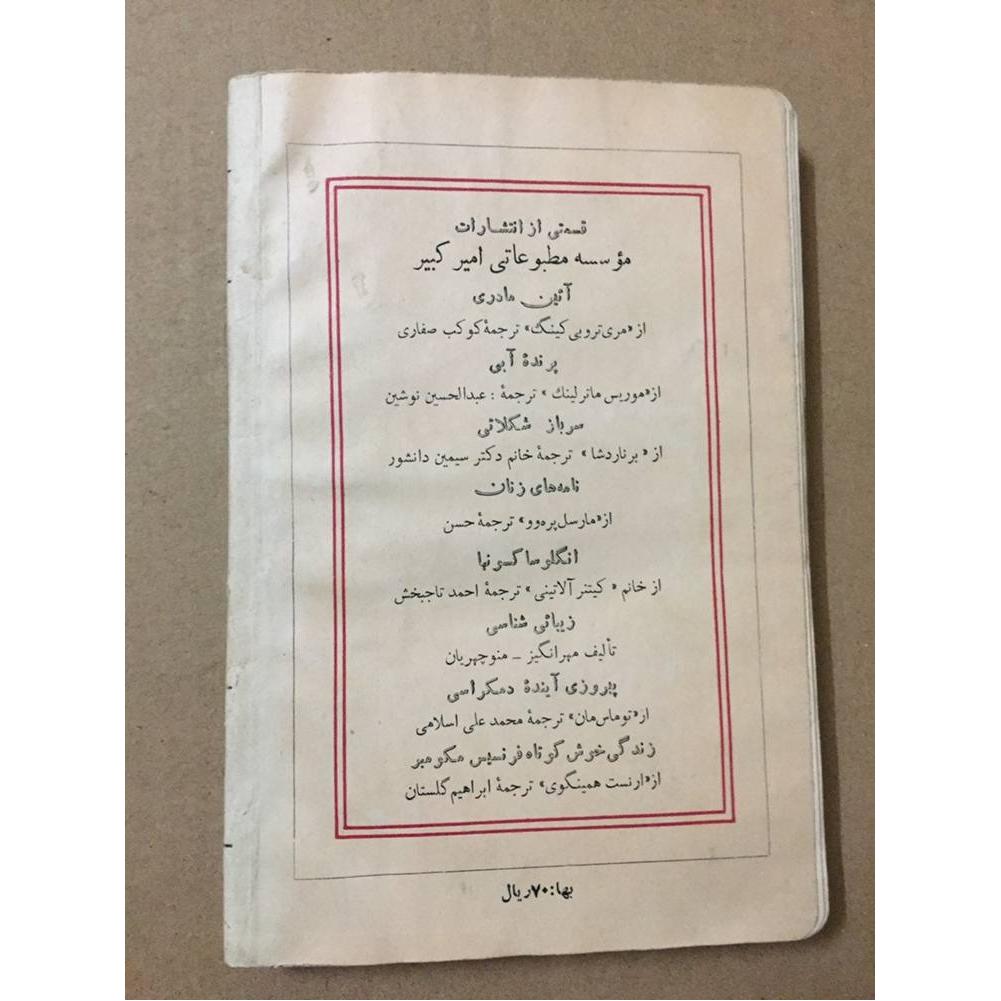 قسمتی از انتشارات
مؤسسه مطبوعاتی امیر کبیر
آئین مادری
از «مری‌تروبی‌کینگ» ترجمهٔ کوکب صفاری
پرندهٔ آبی
از «موریس ماترلینك» ترجمهٔ : عبدالحسین نوشین
سرباز شکلاتی
از «برناردشا» ترجمهٔ خانم دکتر سیمین دانشور
نامه‌های زنان
از «مارسل‌پره‌وو» ترجمهٔ حسن
انگلوساکسونها
از خانم «کیتنر آلاتینی» ترجمهٔ احمد تاجبخش
زیبائی شناسی
تألیف مهرانگیز ـ منوچهریان
پیروزی آیندهٔ دمکراسی
از «توماس‌مان» ترجمهٔ محمد علی اسلامی
زندگی خوش کوتاه فرنسیس مکومبر
از «ارنست همینگوی» ترجمهٔ ابراهیم گلستان
بها: ۷۰ ریال